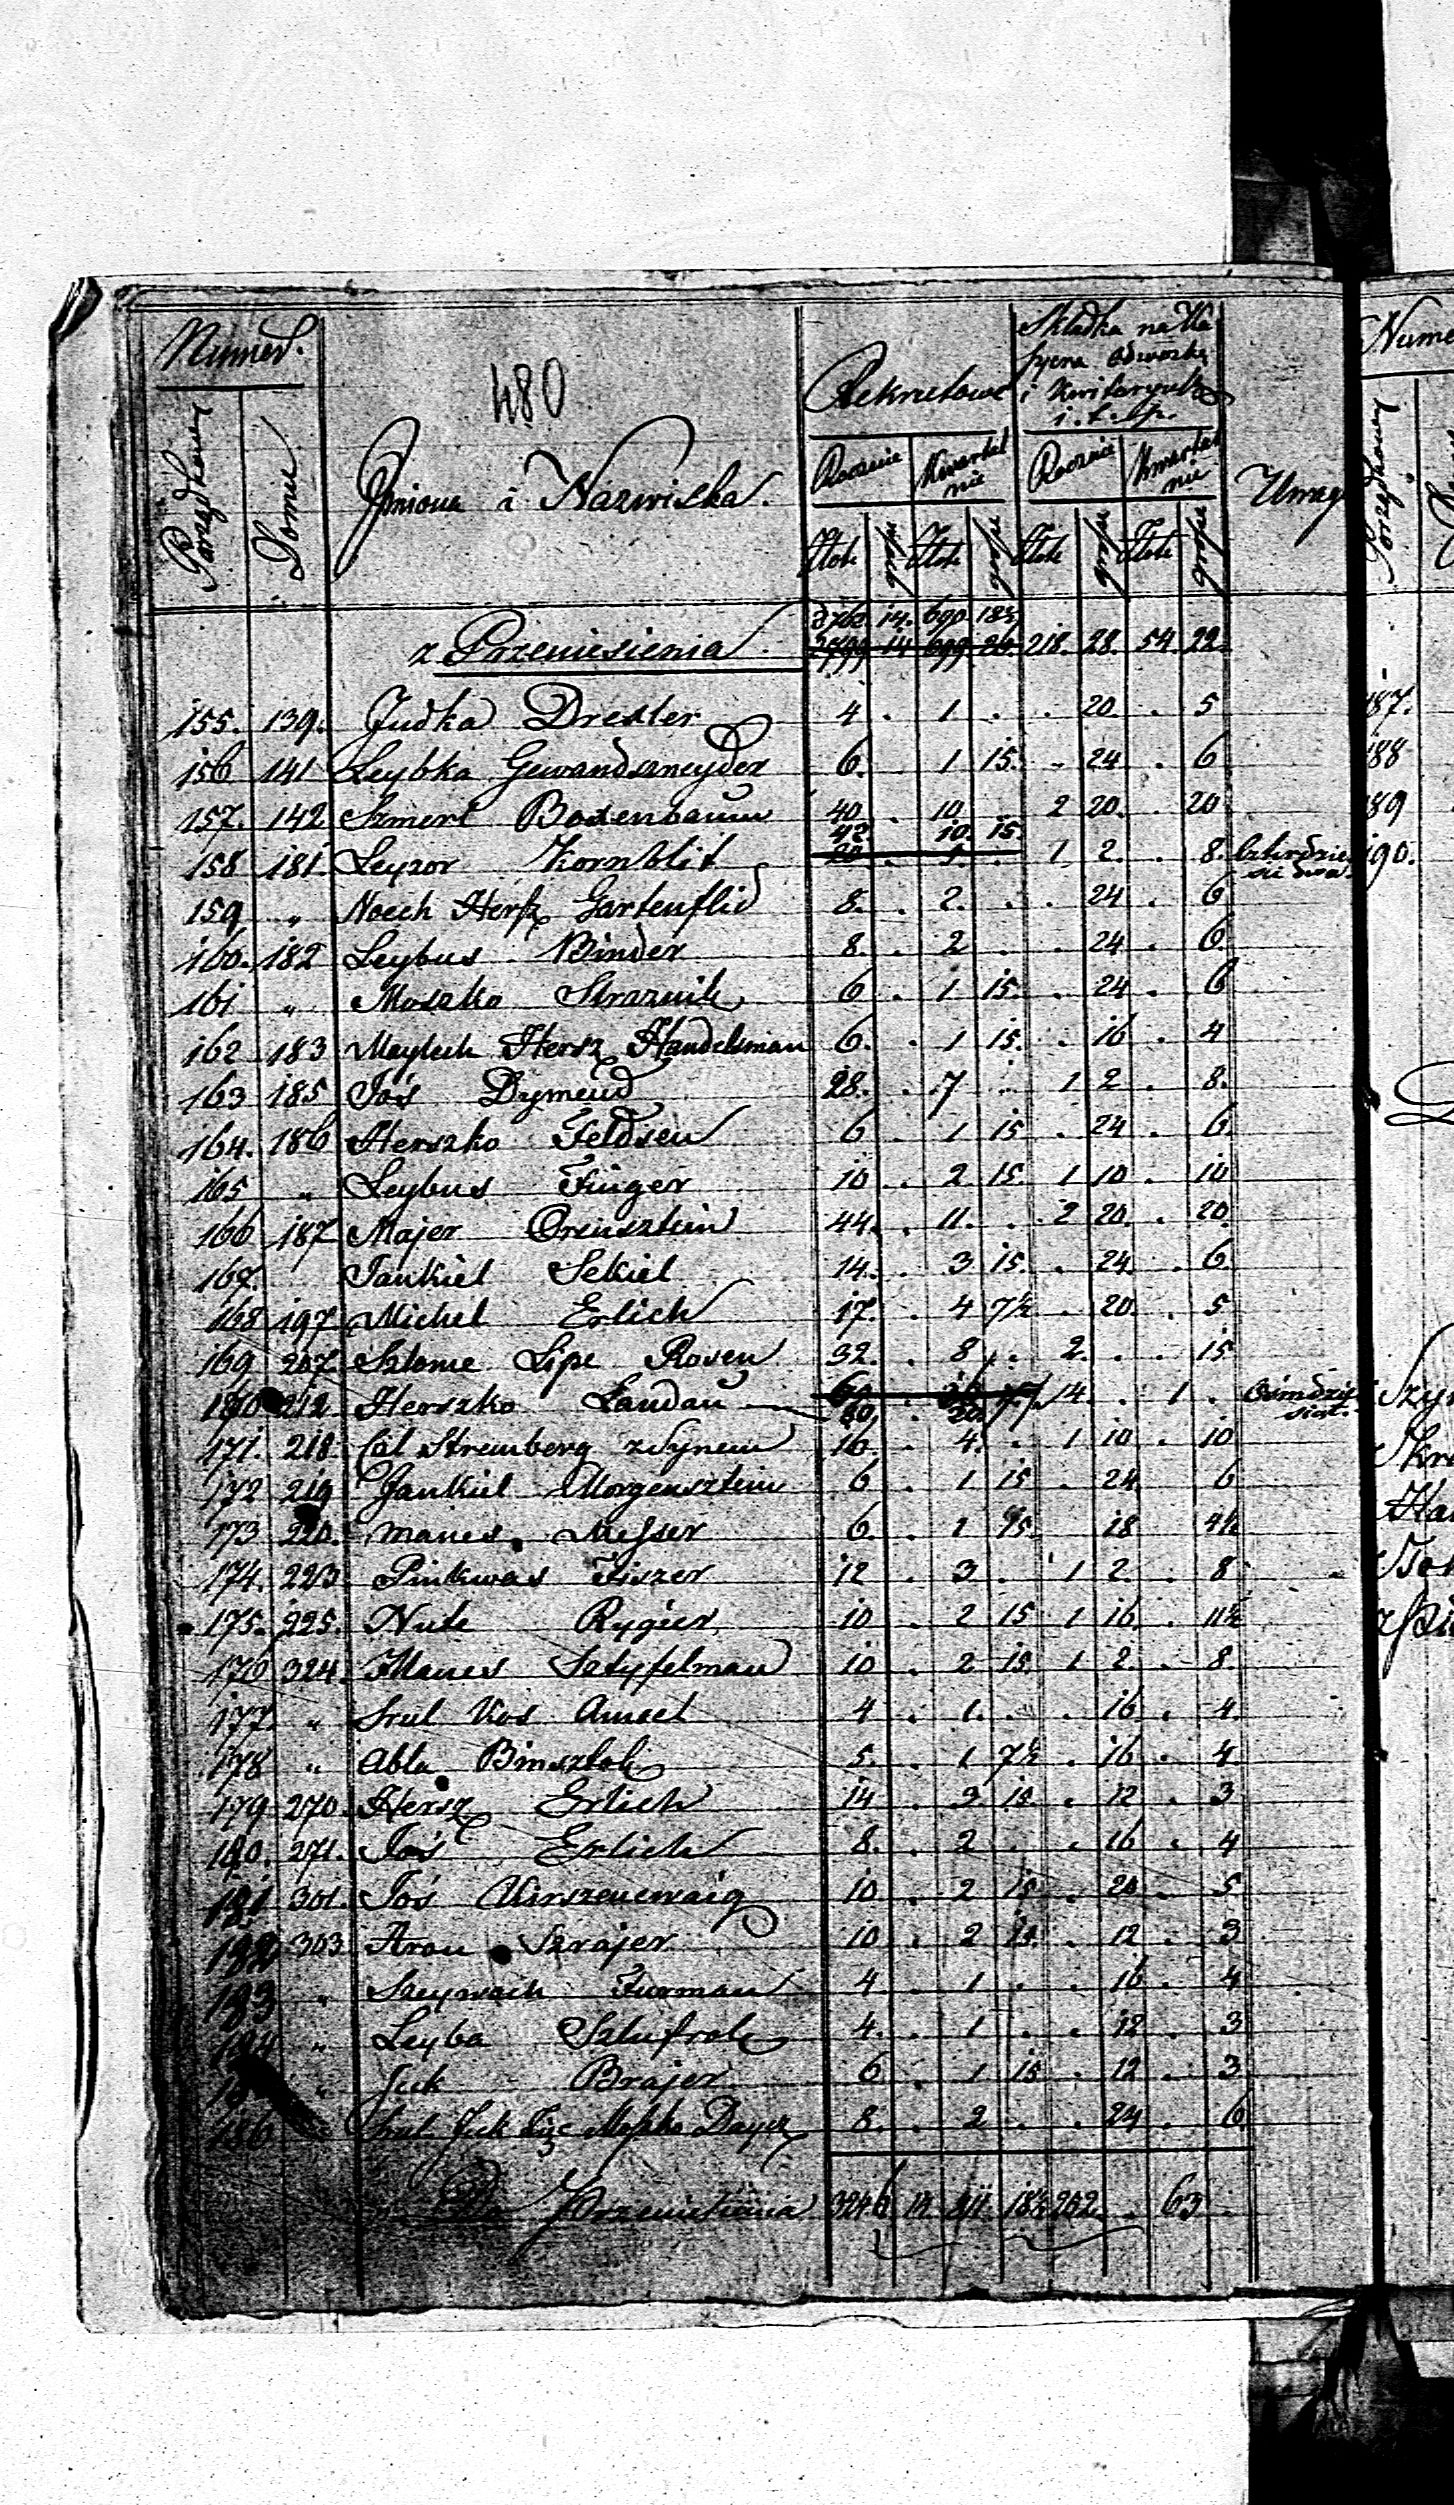 Numer.
480
Rekrutowe
Składka na Ka
i Kwitaryusz
i. t. p.
Porządkowy
Domu
Imiona i Nazwiska.
Rocznie
Kwartal
nie
Rocznie
Kwartal
nie
Złote grosze Złote grosze Złote grosze Złote grosze
14. 690. 18¾
z Przeniesienia 14 699 26. 218. 28. 54. 22.
155. 139. Judka Drexler 4 . 1 . . 20. . 5
156 141 Leybka Gewandszneyder 6. 1 15. . 24 . 6
157. 142 Szmerl Boxenbaum 40 . 10 . 2 20. . 20
42. 10. 15.
158 181. Leyzor Kornblit 20 . 5 . 1 2. . 8. Czterdzie
ści dwa
159 „ Noech Hersz Gartenflid 8. . 2. . . 24 . 6
160. 182 Leybus Binder 8. . 2 . . 24 . 6.
161 „ Moszko Straznik 6 . 1 15. . 24 . 6
162 183 Maylech Hersz Handelsman 6. . 1 15. . 16 . 4
163 185 Jos Dymend 28. . 7 . 1 2 . 8.
164. 186 Herszko Feldsen 6 . 1 15 . 24 . 6.
165 „ Leybus Finger 10 . 2. 15. 1 10 . 10
166 187 Majer Orensztein 44. . 11. . 2 20. . 20.
167. Jankiel Sekiel 14. . 3 15. . 24 . 6.
168 197 Michel Erlich 17. . 4 7½ . 20. . 5
169 207 Szlome Lipe Rosen 32. . 8 . 2. . . 15
170 212 Herszko Landau 14. . 1 . Ośmdzie
siąt.
80. . 20.
171. 218. Cal Stremberg z Synem 16. . 4. . 1 10 . 10
172 219 Jankiel Morgensztein 6 . 1 15 . 24. 6
173 220. Manes Messer 6. . 1 15 18 4½
174. 223. Pinkwas Fiszer 12 . 3 . 1 2. . 8
175. 225. Nute Rygier 10 . 2 15 1 16. . 11½
176 324. Manes Sztyfelman 10 . 2 15. 1 2. . 8.
177. „ Srul Kos Amsel 4 . 1. . . 16 . 4.
178 „ Abla 5. . 1 7½ . 16 . 4
179 270. Hersz Erlich 14 . 3 15. . 12 . 3
180. 271. Jos Erlich 8. . 2 . . 16 . 4
181 301. Jos Kirszencwaig 10 . 2 15 . 20 . 5
182 303 Aron Szrajer 10 . 2 15. . 12. . 3
183 „ Szeywach Furman 4 . 1 . . 16 . 4
184 „ Leyba 4. . 1 . . 12 . 3
„ Jcek Brajer 6 . 1 15 . 12 . 3
186 Srul Jcek Moszko 8. . 2 . . 24 . 6
Do Przeniesienia 3246 14. 811. 18½ 262. . 63